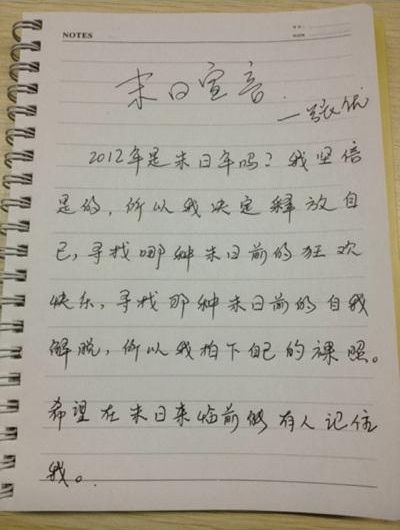 NOTES
末日宣言
2012年是末日年吗？我坚信
是的，所以我决定释放自
己，寻找哪种末日前的狂欢
快乐，寻找那种末日前的自我
解脱，所以我拍下自己的裸照。
希望在末日来临前能有人记住
我。